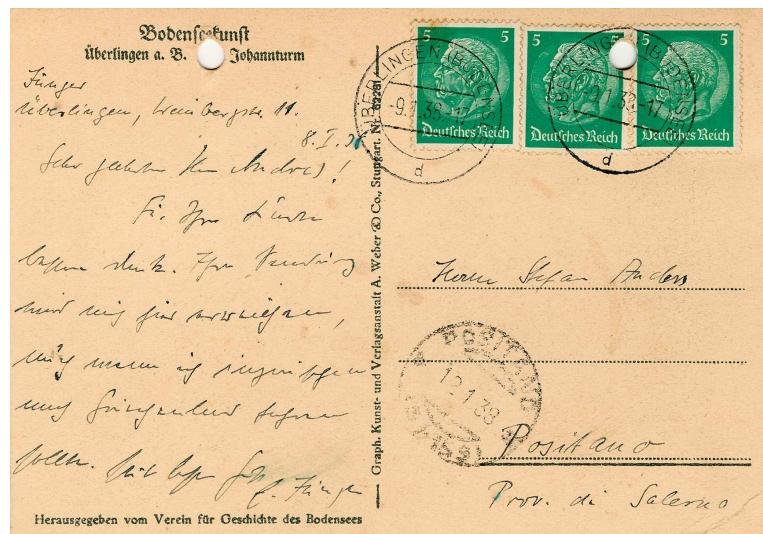 Bodenseekunst
Überlingen a. B. Johannturm
Jünger
Überlingen, Weinbergstr. 11.
8.I.38
Sehr geehrter Herr Andres!
Für Ihre
besten Dank. Ihre Sendung
wird mich hier erreichen,
auch wenn ich inzwischen
nach Griechenland
sollte. Mit besten
E. Jünger
Herausgegeben vom Verein für Geschichte des Bodensees
Graph. Kunst- und Verlagsanstalt A. Weber & Co., Stuttgart. Nr.
5 5
Deutsches Reich
5
Deutsches Reich
5 5
Deutsches Reich
ÜBERLINGEN (BODENSEE)
-9.1.38.-17
d
ÜBERLINGEN (BODENSEE)
-9.1.38.-17
d
Herrn Stefan Andres
POSITANO
12.1.38
Positano
Prov. di Salerno